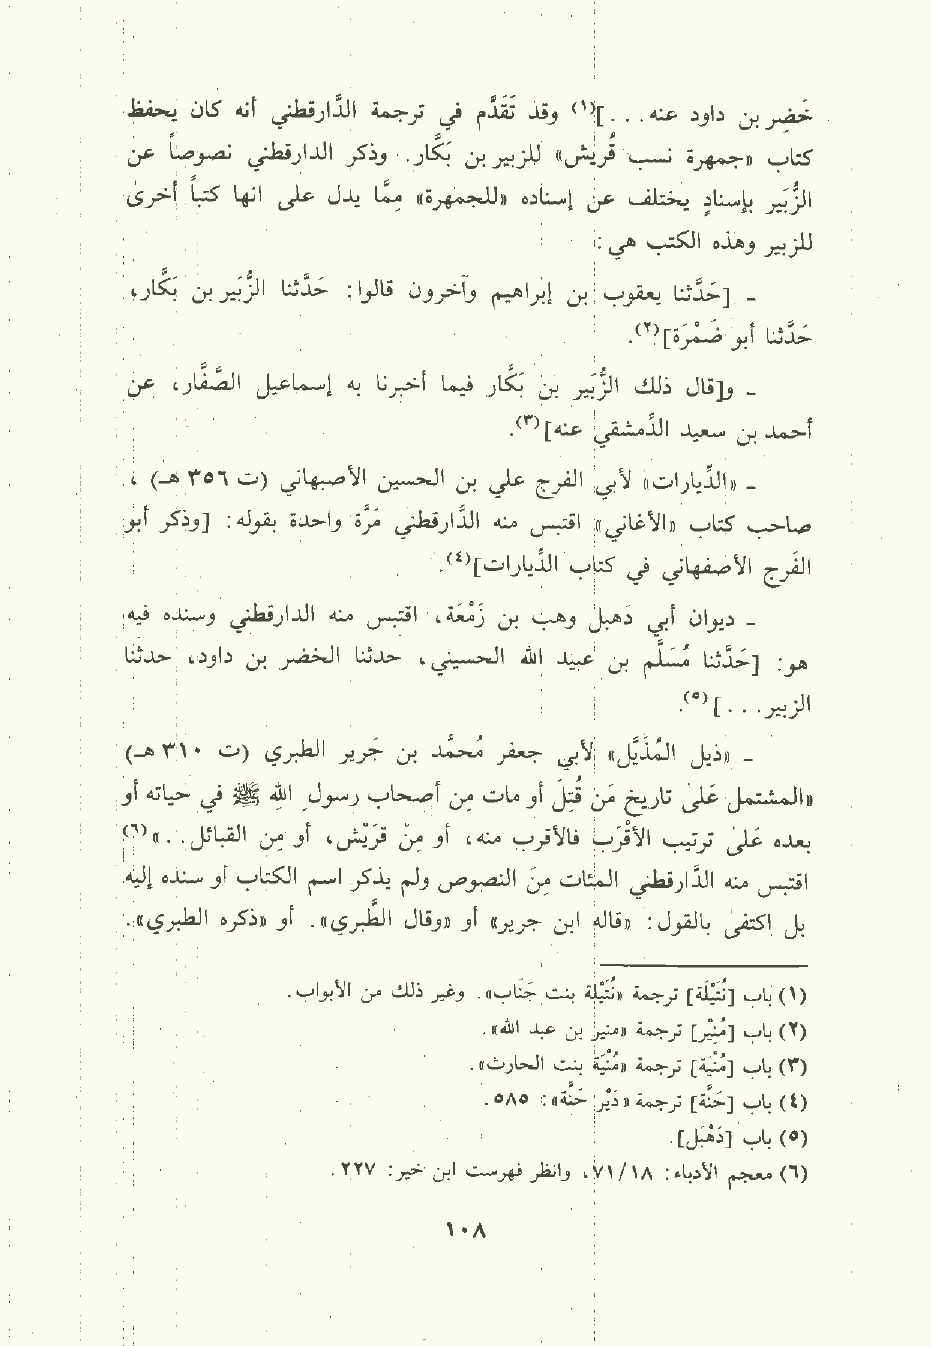 خَضِر بن داود عنه...]⁽١⁾ وقد تَقَدَّم في ترجمة الدَّارقطني أنه كان يحفظ
كتاب «جمهرة نسب قُريش» للزبير بن بَكَّار. وذكر الدارقطني نصوصاً عن
الزُّبَير بإسنادٍ يختلف عن إسناده «للجمهرة» مِمَّا يدل على انها كتباً أخرىٰ
للزبير وهذه الكتب هي:
ـ [حَدَّثنا يعقوب بن إبراهيم وآخرون قالوا: حَدَّثنا الزُّبَير بن بَكَّار،
حَدَّثنا أبو ضَمْرَة]⁽٢⁾.
ـ و[قال ذلك الزُّبَير بن بَكَّار فيما أخبرنا به إسماعيل الصَّفَّار، عن
أحمد بن سعيد الدِّمشقي عنه]⁽٣⁾.
ـ «الدِّيارات» لأبي الفرج علي بن الحسين الأصبهاني (ت ٣٥٦ هـ)،
صاحب كتاب «الأغاني» اقتبس منه الدَّارقطني مَرَّة واحدة بقوله: [وذكر أبو
الفَرج الأصفهاني في كتاب الدِّيارات]⁽٤⁾.
ـ ديوان أبي دَهبل وهب بن زَمْعَة، اقتبس منه الدارقطني وسنده فيه
هو: [حَدَّثنا مُسَلَّم بن عبيد الله الحسيني، حدثنا الخضر بن داود، حدثنا
الزبير...]⁽٥⁾.
ـ «ذيل المُذَيَّل» لأبي جعفر مُحمَّد بن جَرير الطبري (ت ٣١٠ هـ)
«المشتمل عَلىٰ تاريخ مَن قُتِلَ أو مات مِن أصحاب رسولِ اللهِ ﷺ في حياته أو
بعده عَلىٰ ترتيب الأَقْرَب فالأقرب منه، أو مِن قَرَيْش، أو مِن القبائل..»⁽٦⁾
اقتبس منه الدَّارقطني المئات مِن النصوص ولم يذكر اسم الكتاب أو سنده إليه
بل اكتفى بالقول: «قاله ابن جرير» أو «وقال الطَّبري». أو «ذكره الطبري».
(١) باب [نُتَيْلَة] ترجمة «نُتَيْلة بنت جَنَاب». وغير ذلك من الأبواب.
(٢) باب [مُنِيْر] ترجمة «منير بن عبد الله».
(٣) باب [مُنْيَة] ترجمة «مُنْيَة بنت الحارث».
(٤) باب [حَنَّة] ترجمة «دَيْر حَنَّة»: ٥٨٥.
(٥) باب [دَهْبَل].
(٦) معجم الأدباء: ١٨/٧١، وانظر فهرست ابن خير: ٢٢٧.
١٠٨